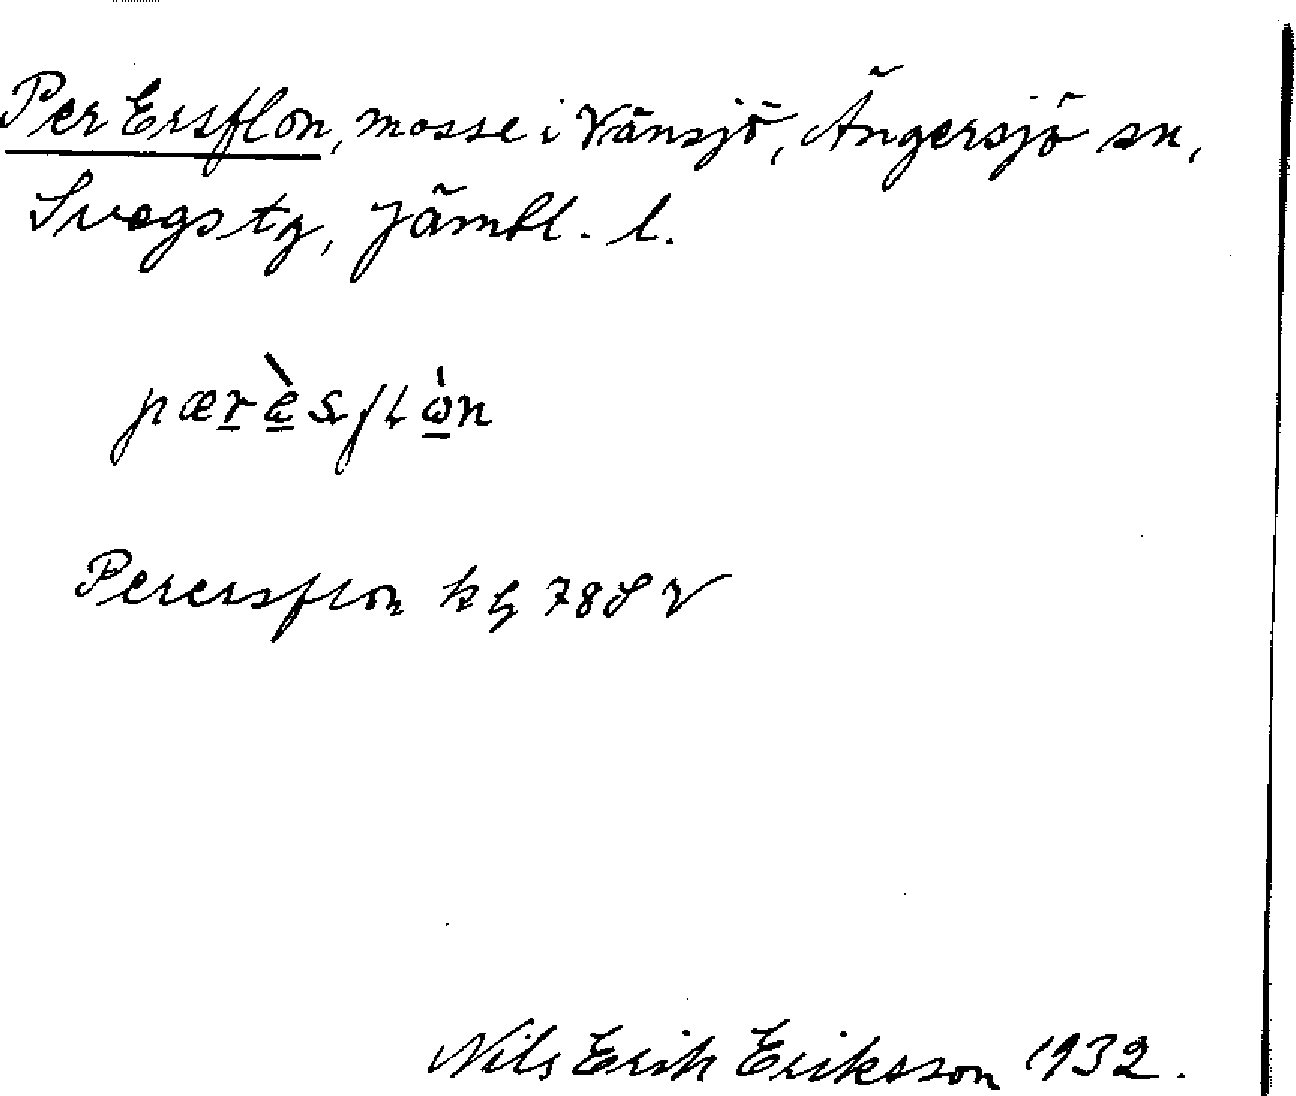 Per Ersflon, mosse i Vänsjö, Ängersjö sn,
Svegs tg, Jämtl. l.
pærèsflòn
Perersflon kg 78 SV
Nils Erik Eriksson 1932.